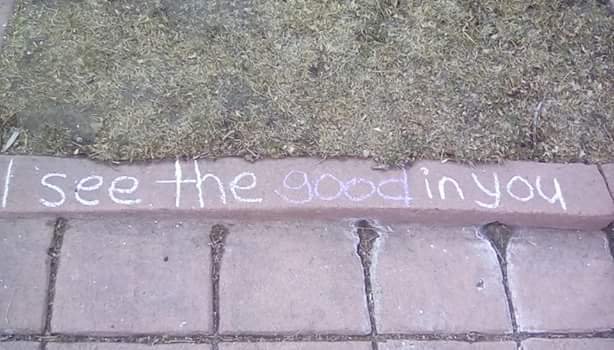 I see the good in you